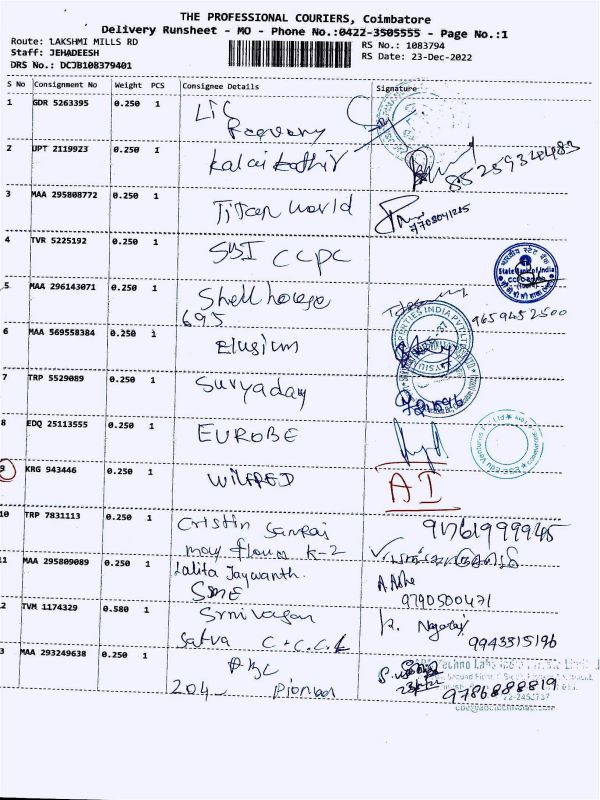 THE PROFESSIONAL COURIERS, Coimbatore
Delivery Runsheet - MO - Phone No.:0422-3505555 - Page No.:1
Route: LAKSHMI MILLS RD
RS No.: 1083794
Staff: JEHADEESH
RS Date: 23-Dec-2022
DRS No.: DCJB108379401
S No Consignment No Weight PCS Consignee Details Signature
1 GDR 5263395 0.250 1 LIC
Recovery
2 UPT 2119923 0.250 1 Kalai Kathir
8525932483
3 MAA 295808772 0.250 1 Titan world
7708041205
4 TVR 5225192 0.250 1 SBI CCPC
State Bank of India
5 MAA 296143071 0.250 1 Shell house
695 9659452500
6 MAA 569558384 0.250 1 Elusium
7 TRP 5529089 0.250 1 Suryaday
8 EDQ 25113555 0.250 1 EUROBE
9 KRG 943446 0.250 1 WILFRED AI
10 TRP 7831113 0.250 1 Cristin Sankai 91761999945
may flower K-2
11 MAA 295809089 0.250 1 Lalita Jaywanth.
SME 9790500471
2 TVM 1174329 0.580 1 Srnivasan K. Nagaraj
Satva C.C.C.L 9943315196
3 MAA 293249638 0.250 1 ABC
204 - Pioneer 9786888819